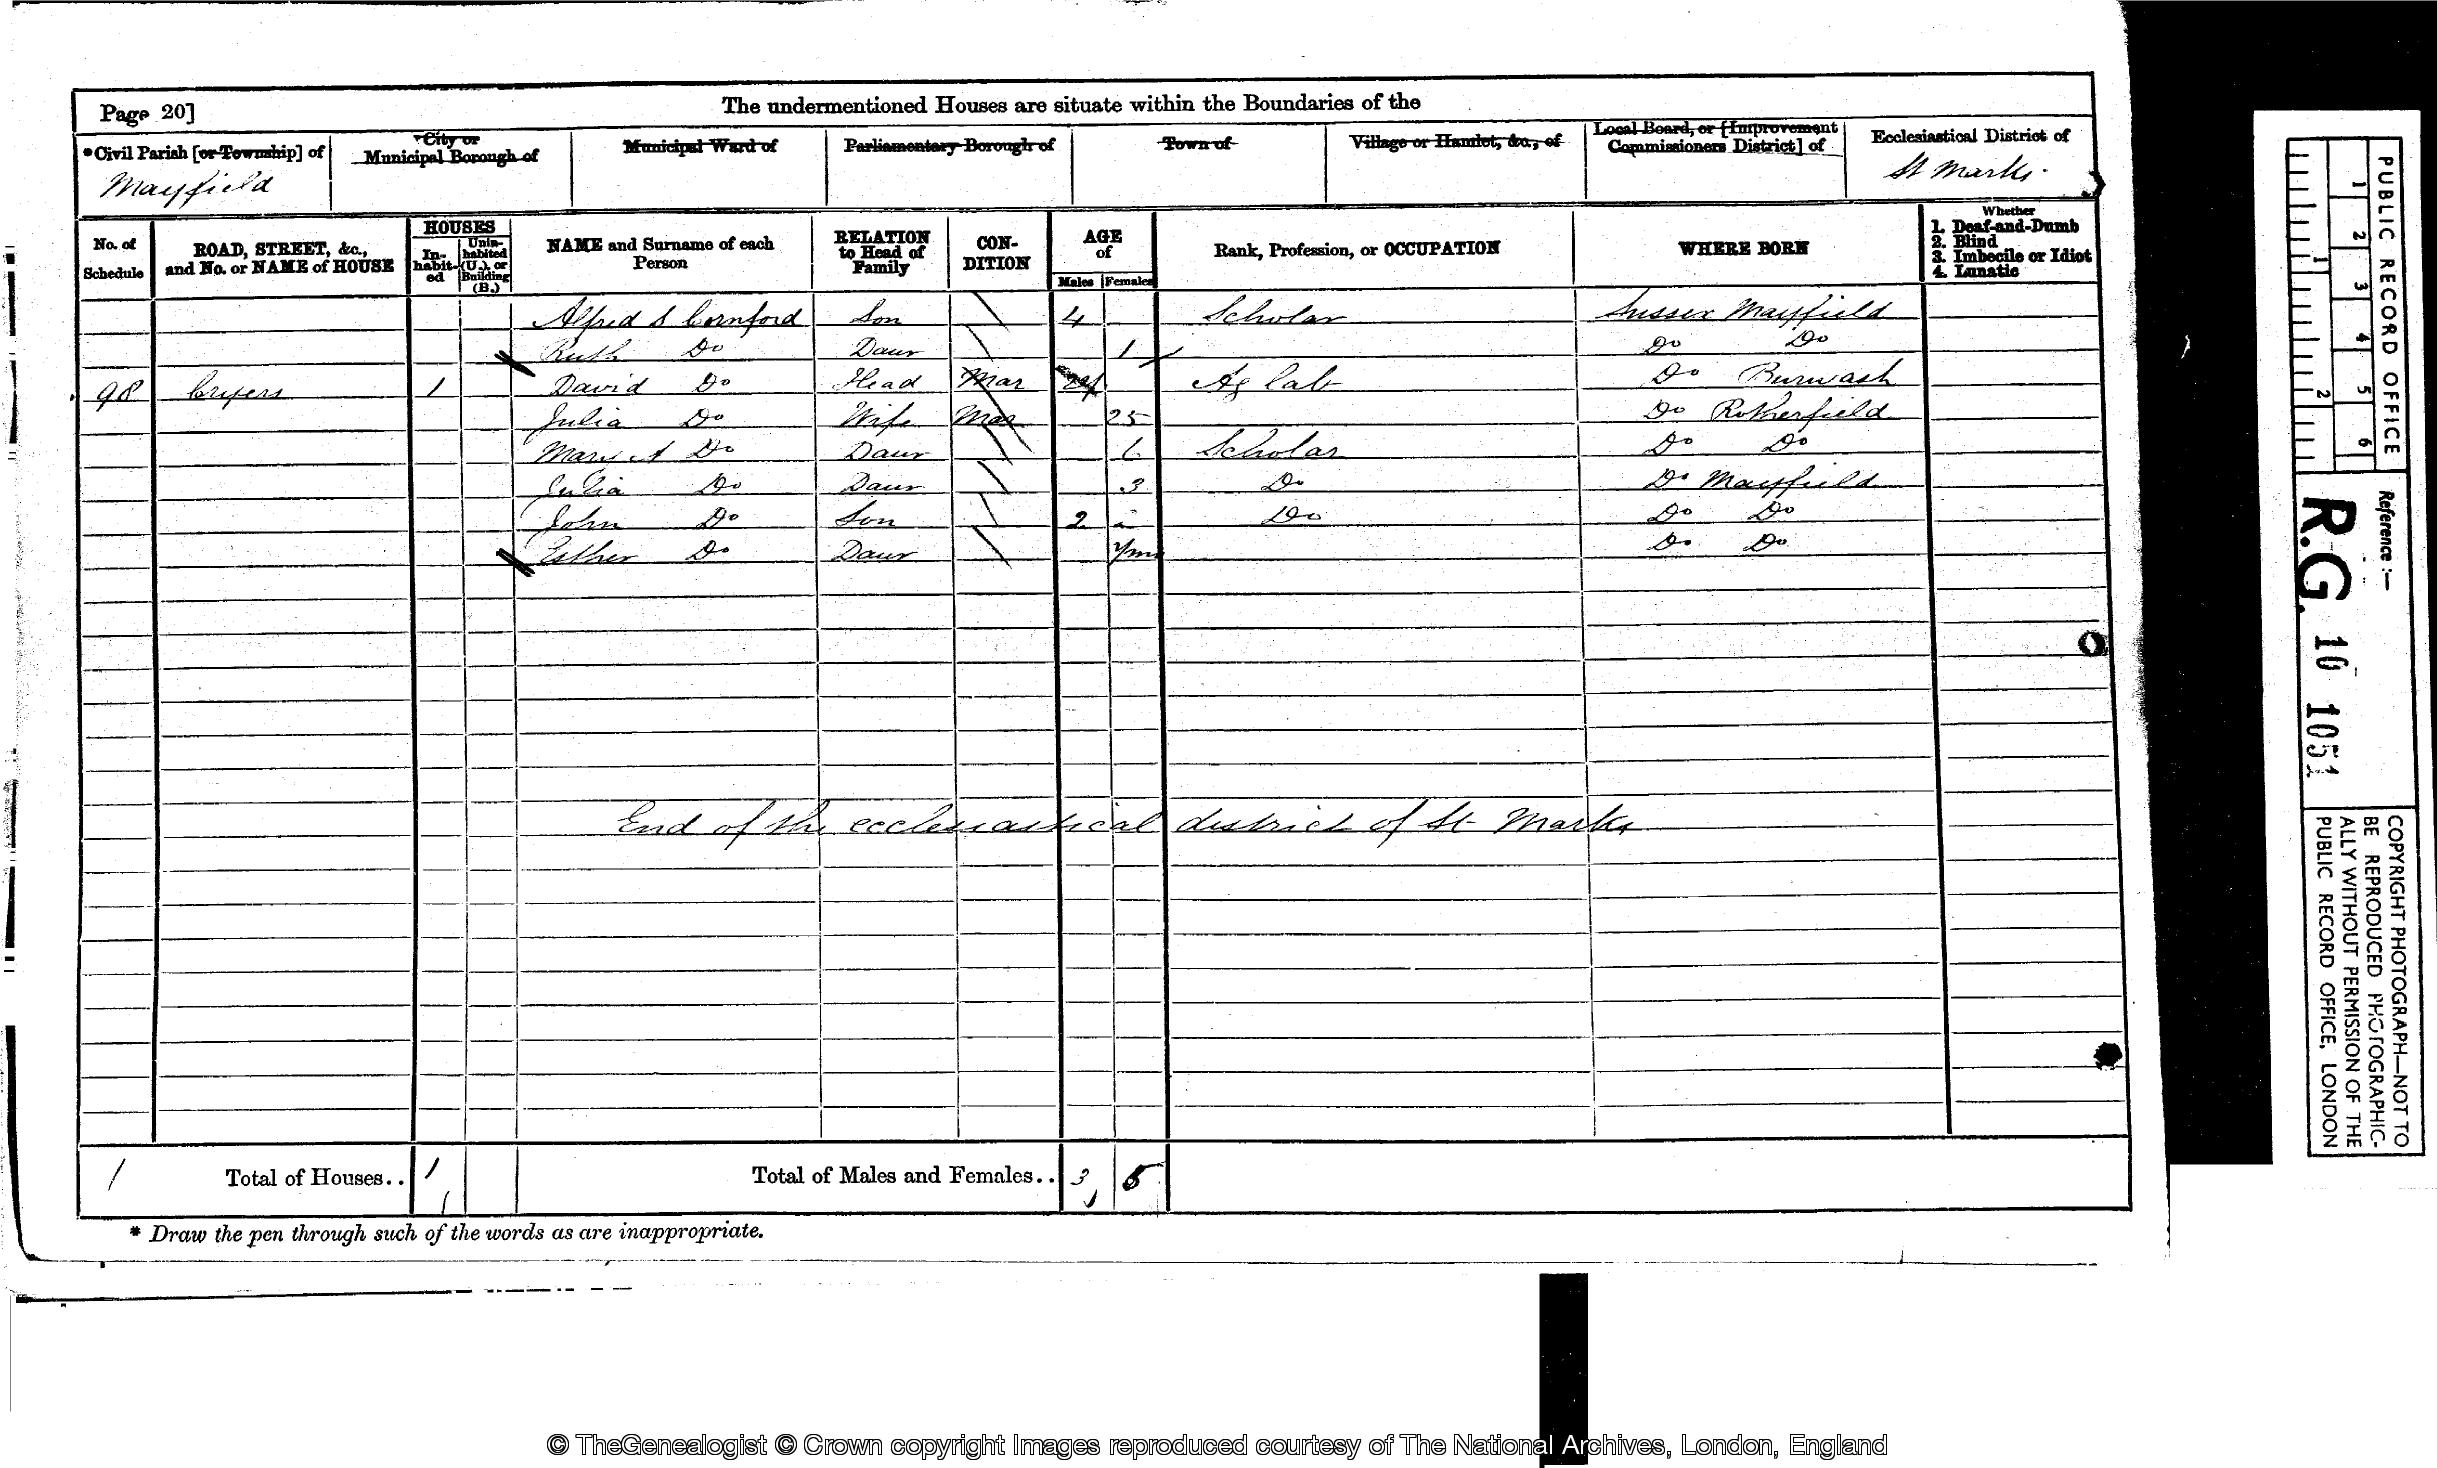 Page 20]
The undermentioned Houses are situate within the Boundaries of the
*Civil Parish [or Township] of
City or Municipal Borough of
Municipal Ward of
Parliamentary Borough of
Town of
Village or Hamlet, &c., of
Local Board, or [Improvement Commissioners District] of
Ecclesiastical District of
Mayfield
St Marks
No. of Schedule
ROAD, STREET, &c., and No. or NAME of HOUSE
HOUSES
In-habit-ed
Unin-habited (U.), or Building (B.)
NAME and Surname of each Person
RELATION to Head of Family
CON-DITION
AGE of
Males
Females
Rank, Profession, or OCCUPATION
WHERE BORN
Whether
1. Deaf-and-Dumb
2. Blind
3. Imbecile or Idiot
4. Lunatic
Alfred S Cornford Son 4 Scholar Sussex Mayfield
Ruth Do Daur 1 Do Do
98 Cryers 1 David Do Head Mar Ag Lab Do Burwash
Julia Do Wife Mar 25 Do Rotherfield
Mary A Do Daur 6 Scholar Do Do
Julia Do Daur 3 Do Do Mayfield
John Do Son 2 Do Do Do
Esther Do Daur Do Do
End of the ecclesiastical district of St Marks
1 Total of Houses.. 1
Total of Males and Females.. 3 5
* Draw the pen through such of the words as are inappropriate.
PUBLIC RECORD OFFICE
1 2 3 4 5 6
1 2
Reference:—
R.G. 10 1051
COPYRIGHT PHOTOGRAPH—NOT TO
BE REPRODUCED PHOTOGRAPHIC-
ALLY WITHOUT PERMISSION OF THE
PUBLIC RECORD OFFICE, LONDON
© TheGenealogist © Crown copyright Images reproduced courtesy of The National Archives, London, England